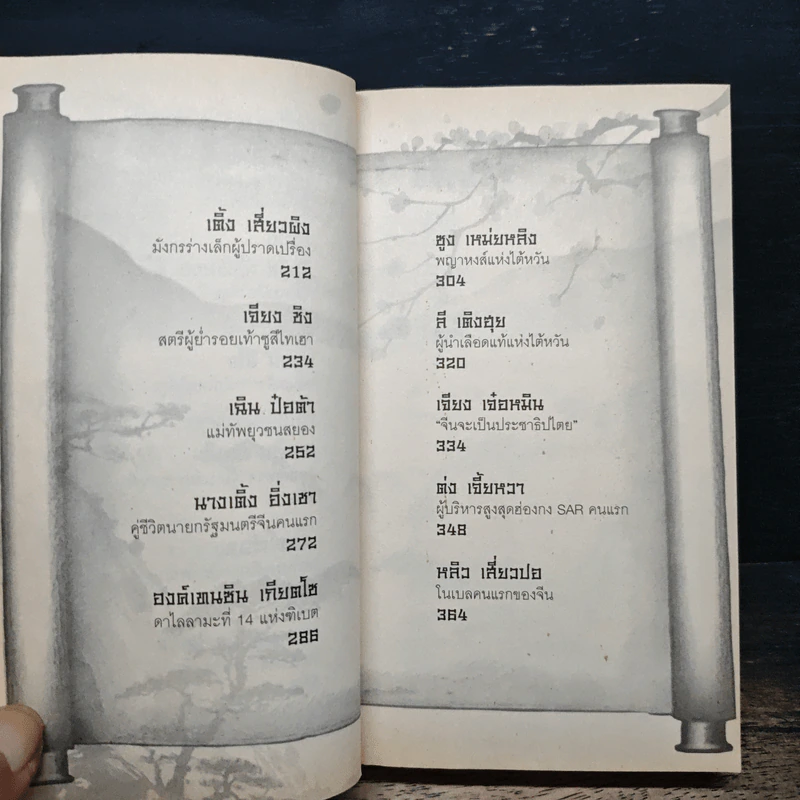 เติ้ง เสี่ยวผิง
มังกรร่างเล็กผู้ปราดเปรื่อง
212
เจียง ชิง
สตรีผู้ย่ำรอยเท้าซูสีไทเฮา
234
เฉิน ป๋อต้า
แม่ทัพยุวชนสยอง
252
นางเติ้ง อิ่งเชา
คู่ชีวิตนายกรัฐมนตรีจีนคนแรก
272
องค์เทนซิน เกียตโซ
ดาไลลามะที่ 14 แห่งทิเบต
286
ซูง เหม่ยหลิง
พญาหงส์แห่งไต้หวัน
304
ลี เติงฮุย
ผู้นำเลือดแท้แห่งไต้หวัน
320
เจียง เจ๋อหมิน
"จีนจะเป็นประชาธิปไตย"
334
ตุ่ง เจี้ยหวา
ผู้บริหารสูงสุดฮ่องกง SAR คนแรก
348
หลิว เสี่ยวปอ
โนเบลคนแรกของจีน
364